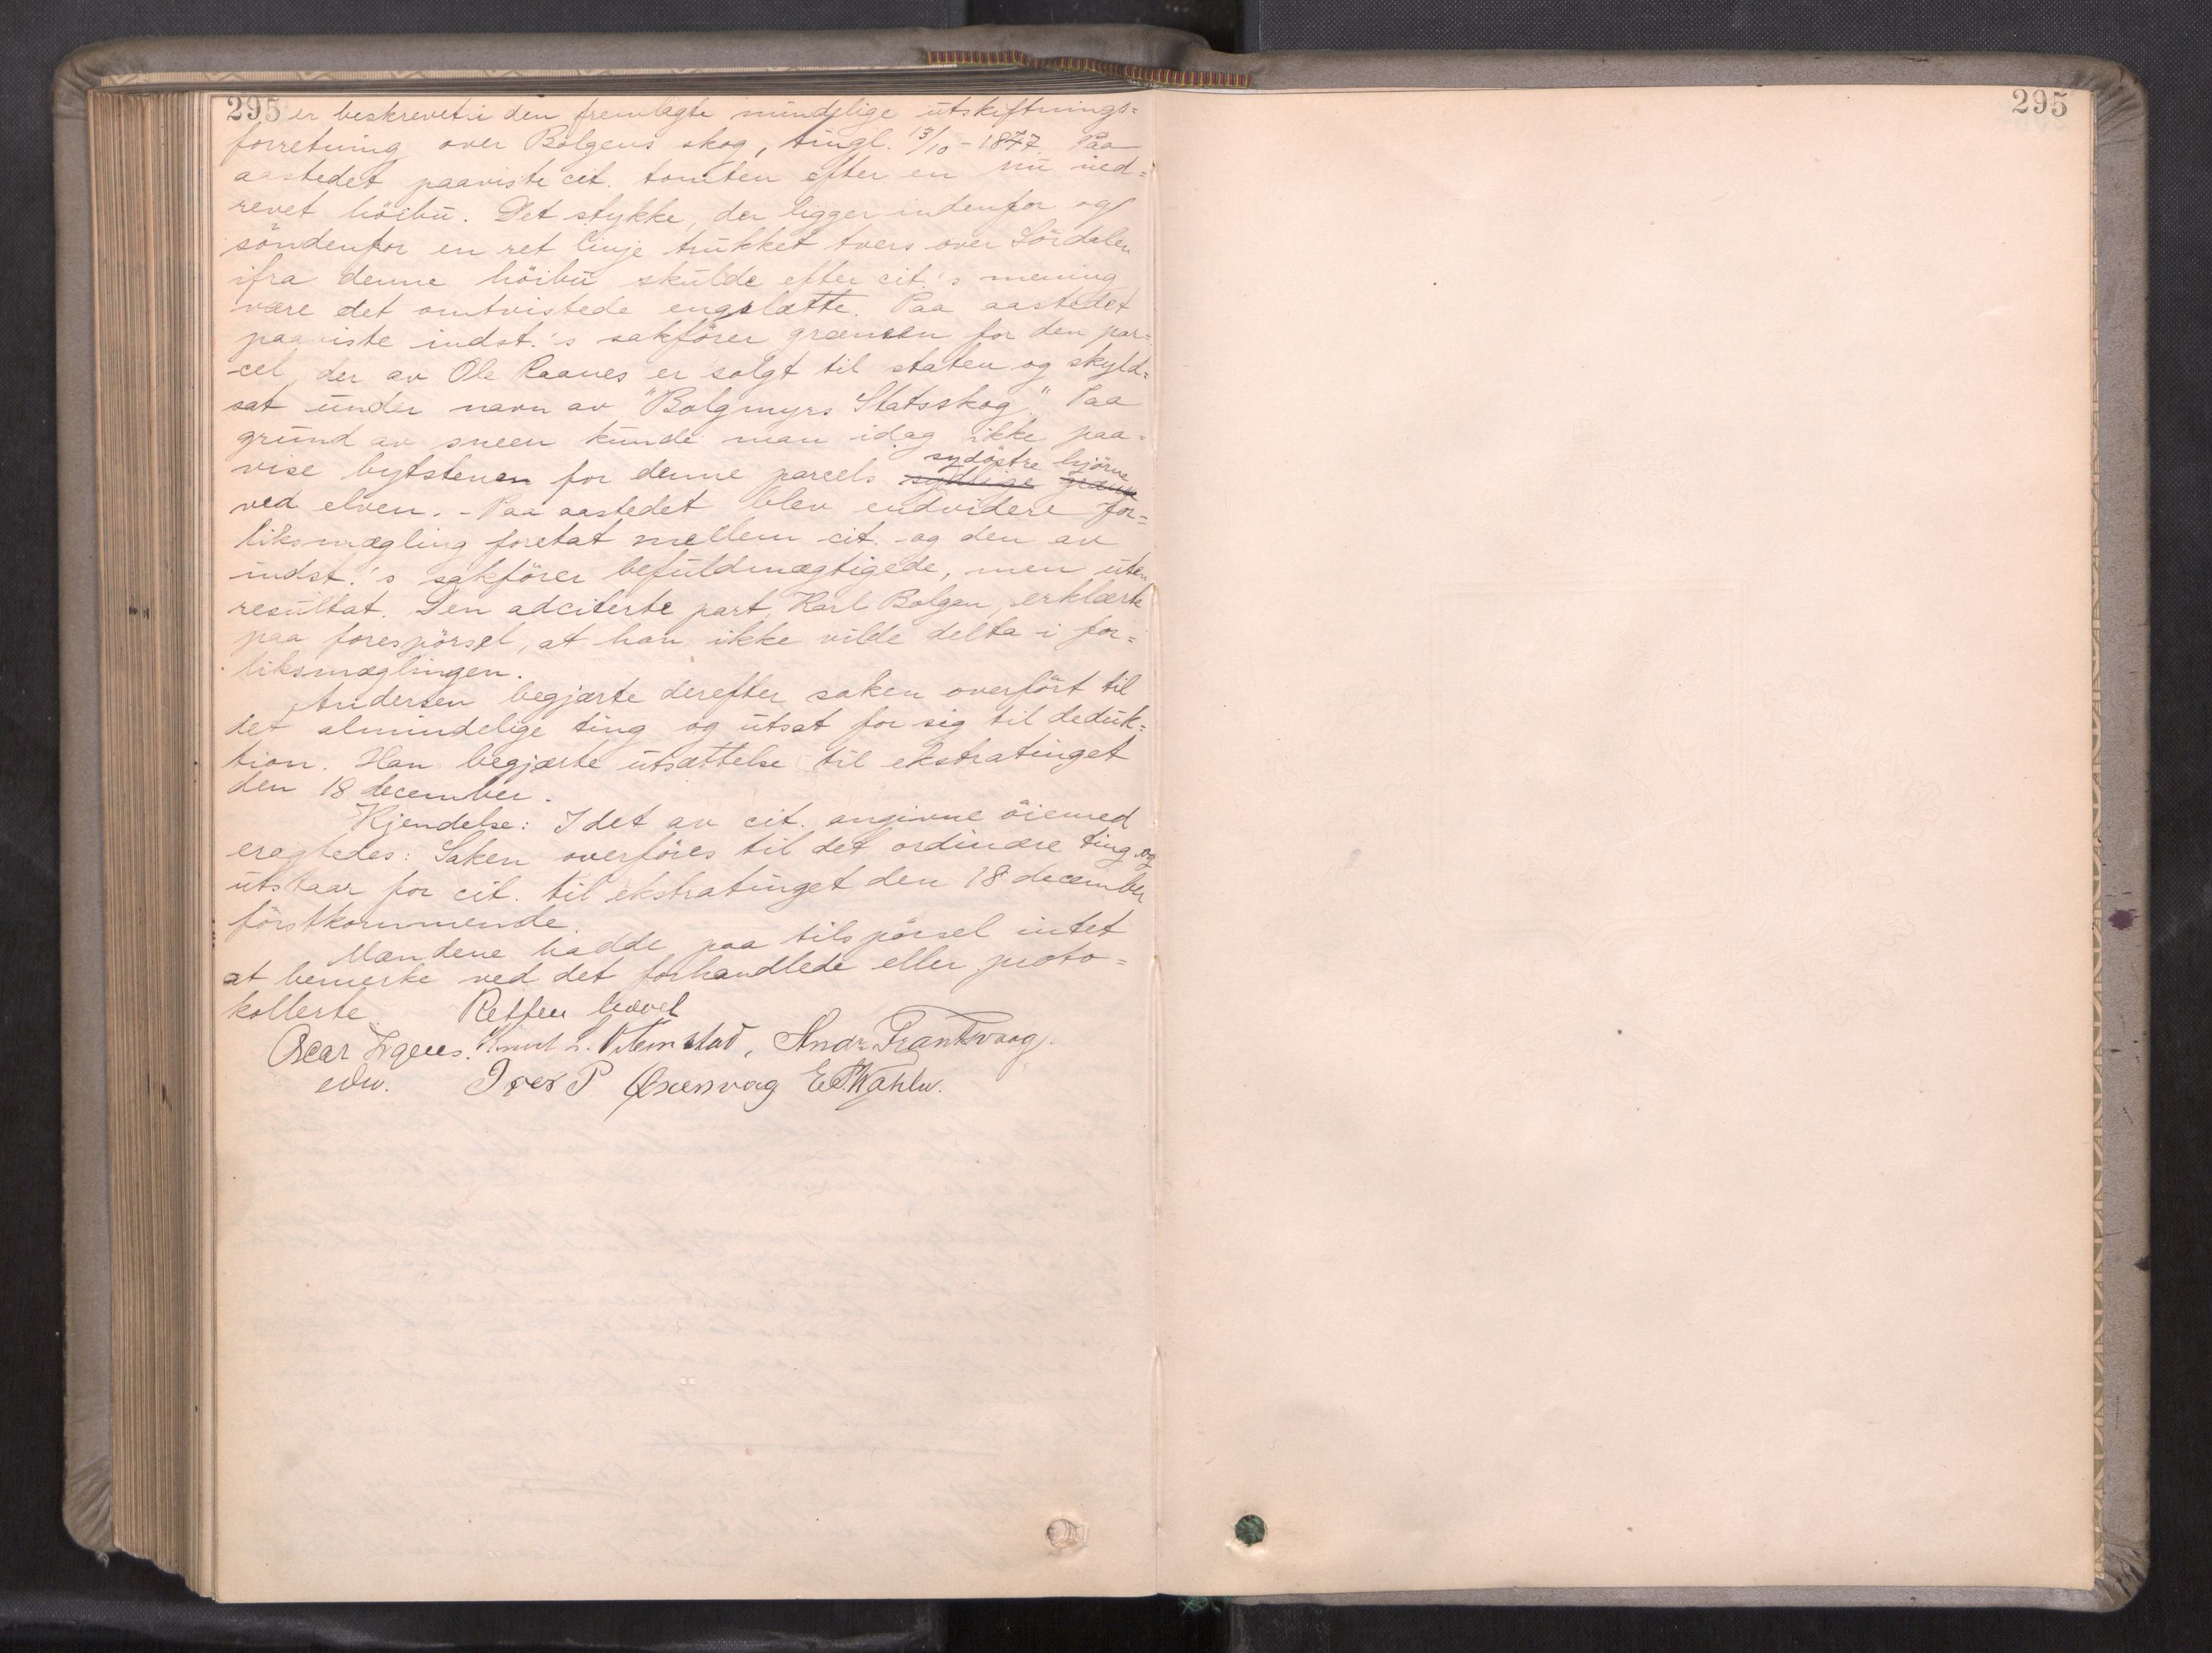 295 er beskrevet i den fremlagte mindelige utskiftnings=
forretning over Bolgens skog, tingl. 13/10 - 1877. Paa
aastedet paaviste cit. tomten efter en nu ned=
revet höibu. Det stykke, der ligger indenfor og
söndenfor en ret linje trukket tvers over Sördalen
ifra denne höibu skulde efter cit.'s mening
være det omtvistede engslætte. Paa aastedet
paaviste indst.'s sakförer grænsen for den par=
cel, der av Ole Raanes er solgt til staten og skyld=
sat under navn av "Bolgmyrs Statsskog." Paa
grund av sneen kunde man idag ikke paa=
vise bytstenen for denne parcels sydlige grænse sydöstre hjörne
ved elven. - Paa aastedet blev endvidere for=
liksmægling foretat mellem cit. og den av
indst.'s sakförer befuldmægtigede, men uten
resultat. Den adciterte part, Karl Bolgen, erklærte
paa forespörsel, at han ikke vilde delta i for=
liksmæglingen.
Andersen begjærte derefter saken overfört til
det almindelige ting og utsat for sig til deduk=
tion. Han begjærte utsættelse til ekstratinget
den 18 december.
Kjendelse: I det av cit. angivne öiemed
eragtedes: Saken overföres til det ordinære ting og
utstaar for cit. til ekstratinget den 18 december
förstkommende.
Mændene hadde paa tilspörsel intet
at bemerke ved det forhandlede eller proto=
kollerte. Retten hævet
Oscar Knut L. Andr. Frantsvaag.
edw. Iver P Øxenvag E.
295